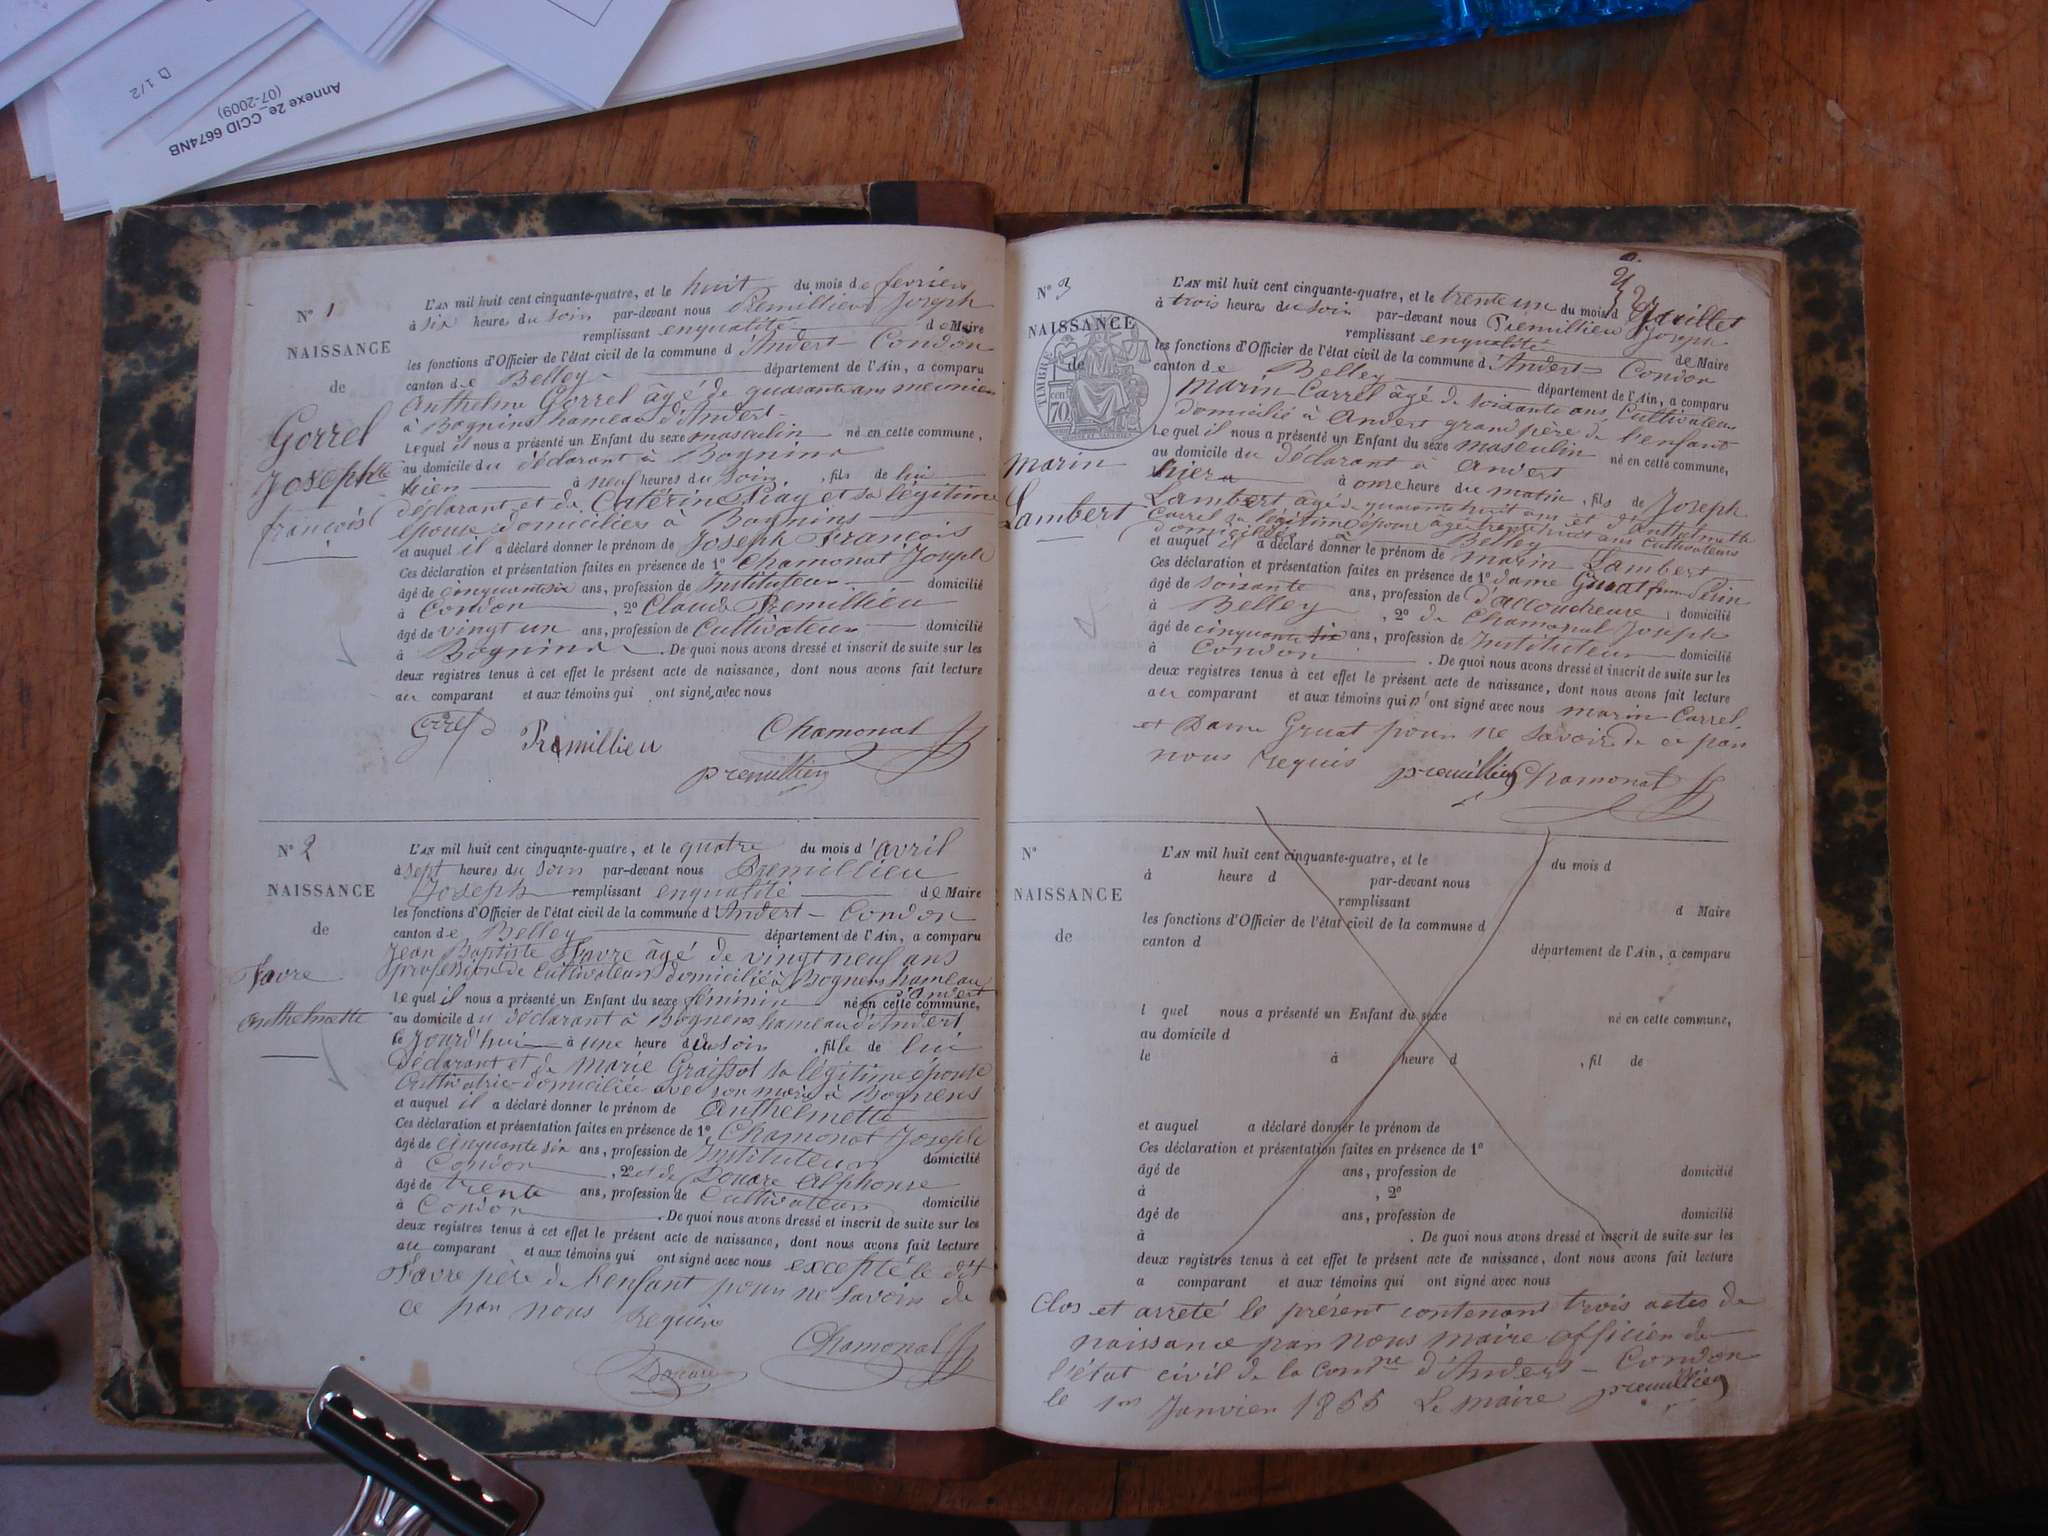 Annexe 2e_CCID 6674NB
(07-2009)
D 1/2
N° 1
NAISSANCE
de
Gorrel
Josephe
françois
L'AN mil huit cent cinquante-quatre, et le huit du mois de fevrier
à six heures du soir par-devant nous Premillieu Joseph
remplissant enqualité de Maire
les fonctions d'Officier de l'état civil de la commune d'Andert-Condon
canton de Belley département de l'Ain, a comparu
Anthelme Gorrel âgé de quarante ans meunier
à Bognins hameau d'Andert
Lequel il nous a présenté un Enfant du sexe masculin né en cette commune,
au domicile du déclarant à Bognins
hier à neuf heures du soir, fils de lui
déclarant et de Catérine Piay et sa légitime
épouse domiciliés à Bognins
et auquel il a déclaré donner le prénom de Joseph François
Ces déclaration et présentation faites en présence de 1° Chamonat Joseph
âgé de cinquantsix ans, profession de Instituteur domicilié
à Condon, 2° Claude Premillieu
âgé de vingt un ans, profession de Cultivateur domicilié
à Bognins. De quoi nous avons dressé et inscrit de suite sur les
deux registres tenus à cet effet le présent acte de naissance, dont nous avons fait lecture
au comparant et aux témoins qui ont signé, avec nous
Gorrel Premillieu Chamonat
premillieu
N° 2
NAISSANCE
de
Favre
Anthelmette
L'AN mil huit cent cinquante-quatre, et le quatre du mois d'avril
à sept heures du soir par-devant nous Premillieu
Joseph remplissant enqualité de Maire
les fonctions d'Officier de l'état civil de la commune d'Andert-Condon
canton de Belley département de l'Ain, a comparu
Jean Baptiste Favre âgé de vingt neuf ans
profession de Cultivateur domicilié à Bognens hameau
d'Andert
Lequel il nous a présenté un Enfant du sexe féminin né en cette commune,
au domicile du déclarant à Bognens hameau d'Andert
le Jourd'hui à une heure du soir, fille de lui
Déclarant et de Marie Graissot sa légitime épouse
Cultivatrice domiciliée avec son mari à Bognens
et auquel il a déclaré donner le prénom de Anthelmette
Ces déclaration et présentation faites en présence de 1° Chamonat Joseph
âgé de cinquante six ans, profession de Instituteur domicilié
à Condon, 2° et de Douare Alphonse
âgé de trente ans, profession de Cultivateur domicilié
à Condon. De quoi nous avons dressé et inscrit de suite sur les
deux registres tenus à cet effet le présent acte de naissance, dont nous avons fait lecture
au comparant et aux témoins qui ont signé avec nous excepté le dit
Favre père de l'enfant pour ne savoir de
ce par nous requis
Chamonat
Douare
N° 3
NAISSANCE
de
TIMBRE
70
Marin
Lambert
L'AN mil huit cent cinquante-quatre, et le trente un du mois d Juillet
à trois heures du soir par-devant nous Premillieu Joseph
remplissant enqualité de Maire
les fonctions d'Officier de l'état civil de la commune d'Andert-Condon
canton de Belley département de l'Ain, a comparu
Marin Carrel âgé de soixante ans, Cultivateur
domicilié à Andert grand père de l'enfant
Lequel il nous a présenté un Enfant du sexe masculin né en cette commune,
au domicile du déclarant à Andert
hier à onze heure du matin, fils de Joseph
Lambert âgé de quarante huit ans et d'Anthelmette
Carrel sa légitime épouse âgé trente huit ans cultivateurs
domiciliés à Belley
et auquel il a déclaré donner le prénom de Marin Lambert
Ces déclaration et présentation faites en présence de 1° dame Gruat femme Perin
âgé de soixante ans, profession de d'accoucheuse domicilié
à Belley, 2° de Chamonat Joseph
âgé de cinquante six ans, profession de Instituteur domicilié
à Condon. De quoi nous avons dressé et inscrit de suite sur les
deux registres tenus à cet effet le présent acte de naissance, dont nous avons fait lecture
au comparant et aux témoins qui n'ont signé avec nous marin Carrel
et Dame Gruat pour ne savoir de ce par
nous requis premillieu Chamonat
N°
NAISSANCE
de
L'AN mil huit cent cinquante-quatre, et le du mois d
à heure d par-devant nous
remplissant d Maire
les fonctions d'Officier de l'état civil de la commune d
canton d département de l'Ain, a comparu
l quel nous a présenté un Enfant du sexe né en cette commune,
au domicile d
le à heure d , fil de
et auquel a déclaré donner le prénom de
Ces déclaration et présentation faites en présence de 1°
âgé de ans, profession de domicilié
à , 2°
âgé de ans, profession de domicilié
à . De quoi nous avons dressé et inscrit de suite sur les
deux registres tenus à cet effet le présent acte de naissance, dont nous avons fait lecture
a comparant et aux témoins qui ont signé avec nous
Clos et arrêté le présent contenant trois actes de
naissance par nous maire officier de
l'état civil de la Comne d'Andert-Condon
le 1er Janvier 1855 Le maire premillieu